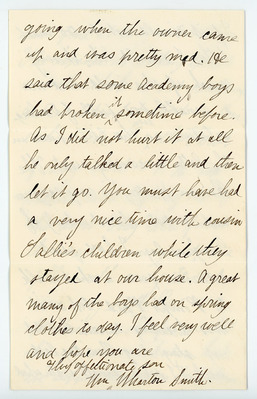 going when the owner came
up and was pretty mad. He
said that some academy boys
had broken it sometime before.
As I did not hurt it at all
he only talked a little and then
let it go. You must have had
a very nice time with cousin
Sallie's children while they
stayed at our house. A great
many of the boys had on spring
clothes to day. I feel very well
and hope you are
affectionate son
Wm Wharton Smith.